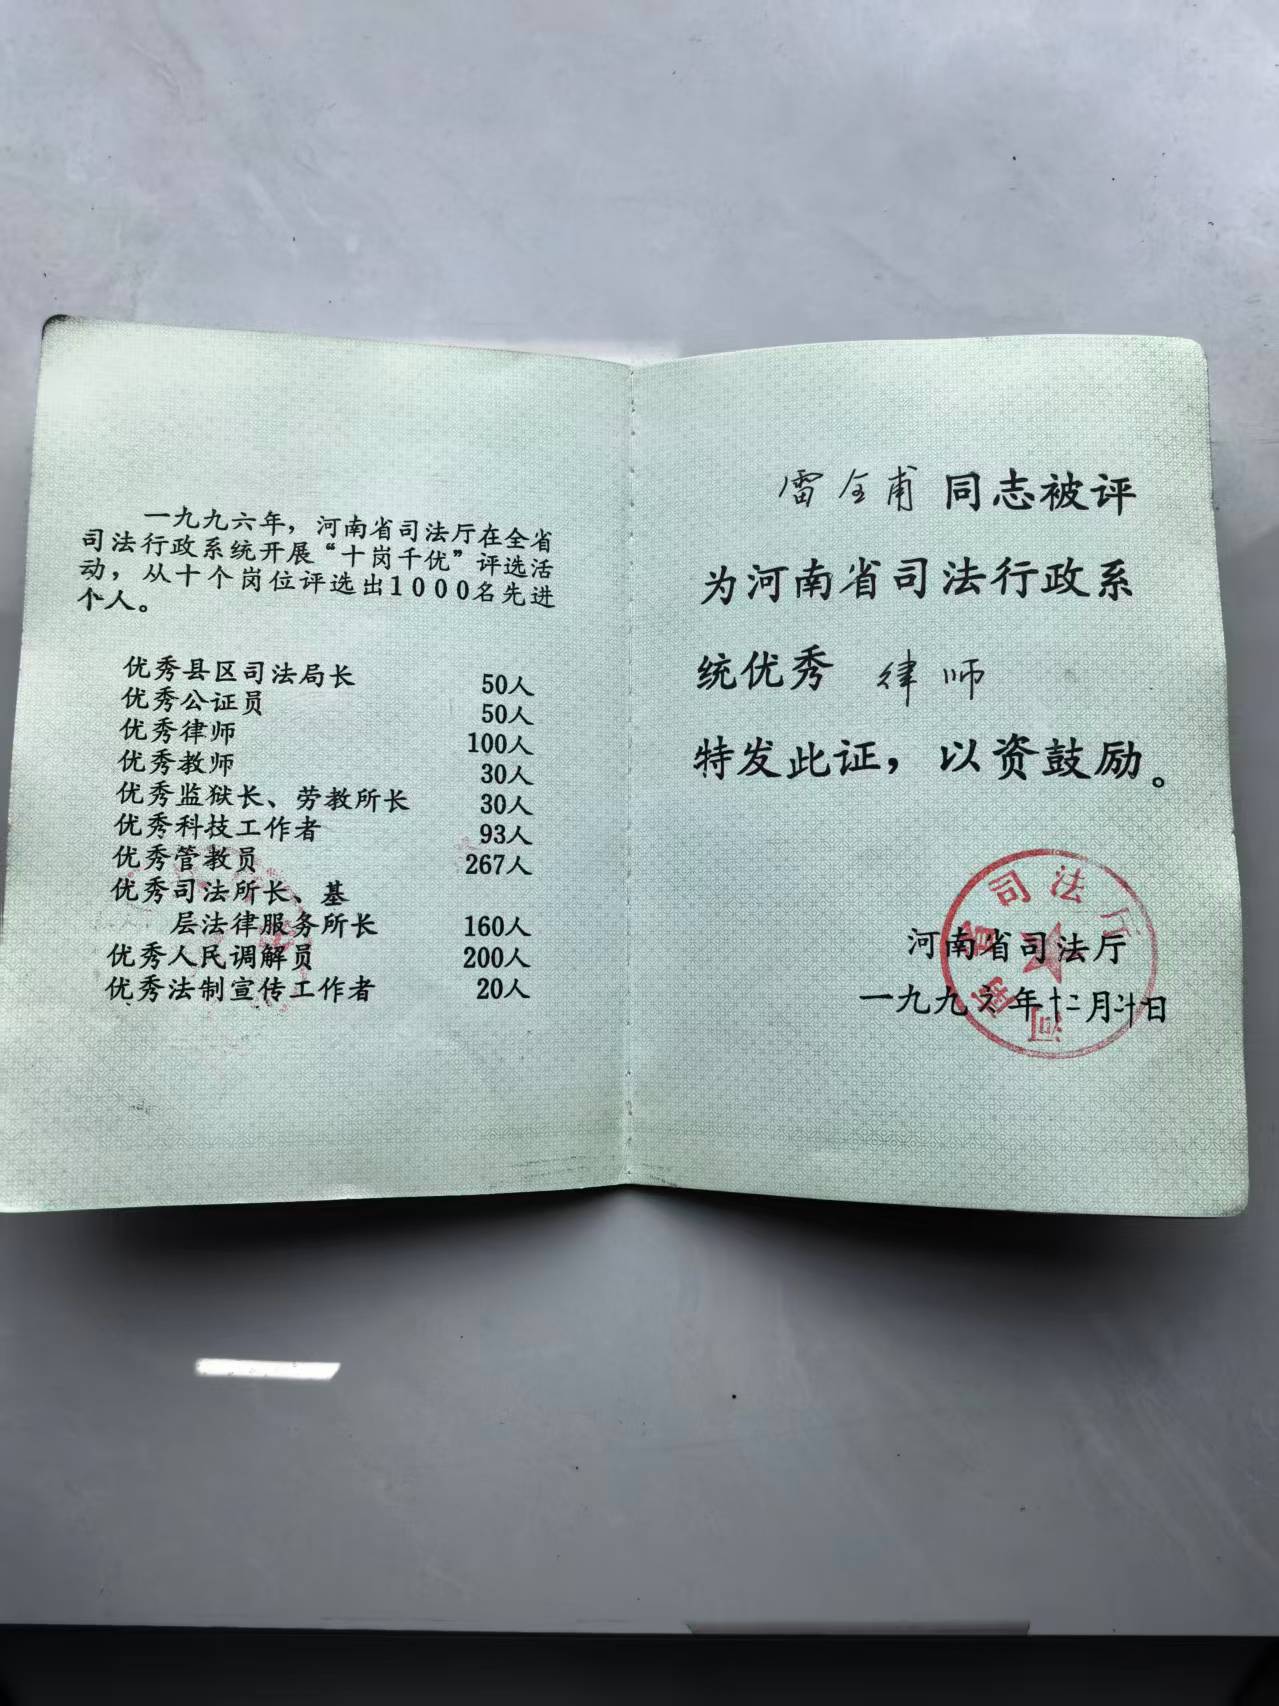 一九九六年，河南省司法厅在全省
司法行政系统开展“十岗千优”评选活
动，从十个岗位评选出1000名先进
个人。
优秀县区司法局长 50人
优秀公证员 50人
优秀律师 100人
优秀教师 30人
优秀监狱长、劳教所长 30人
优秀科技工作者 93人
优秀管教员 267人
优秀司法所长、基
层法律服务所长 160人
优秀人民调解员 200人
优秀法制宣传工作者 20人
雷全甫同志被评
为河南省司法行政系
统优秀 律师
特发此证，以资鼓励。
河南省司法厅
一九九六年十二月廿日
河南省司法厅